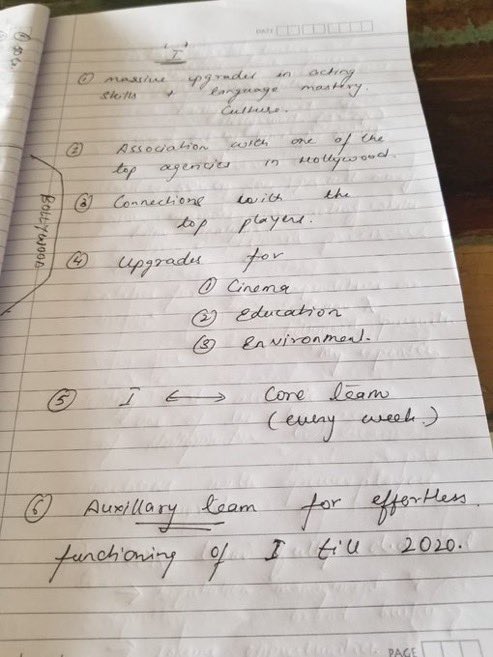 DATE
"I"
① massive upgrades in acting
skills + language mastery.
Culture.
② Association with one of the
top agencies in Hollywood.
③ Connections with the
top players.
④ Upgrades for
① Cinema
② Education
③ Environment.
⑤ I ↔ Core team
(every week.)
⑥ Auxillary team for effortless
functioning of I till 2020.
BOLLYWOOD
PAGE